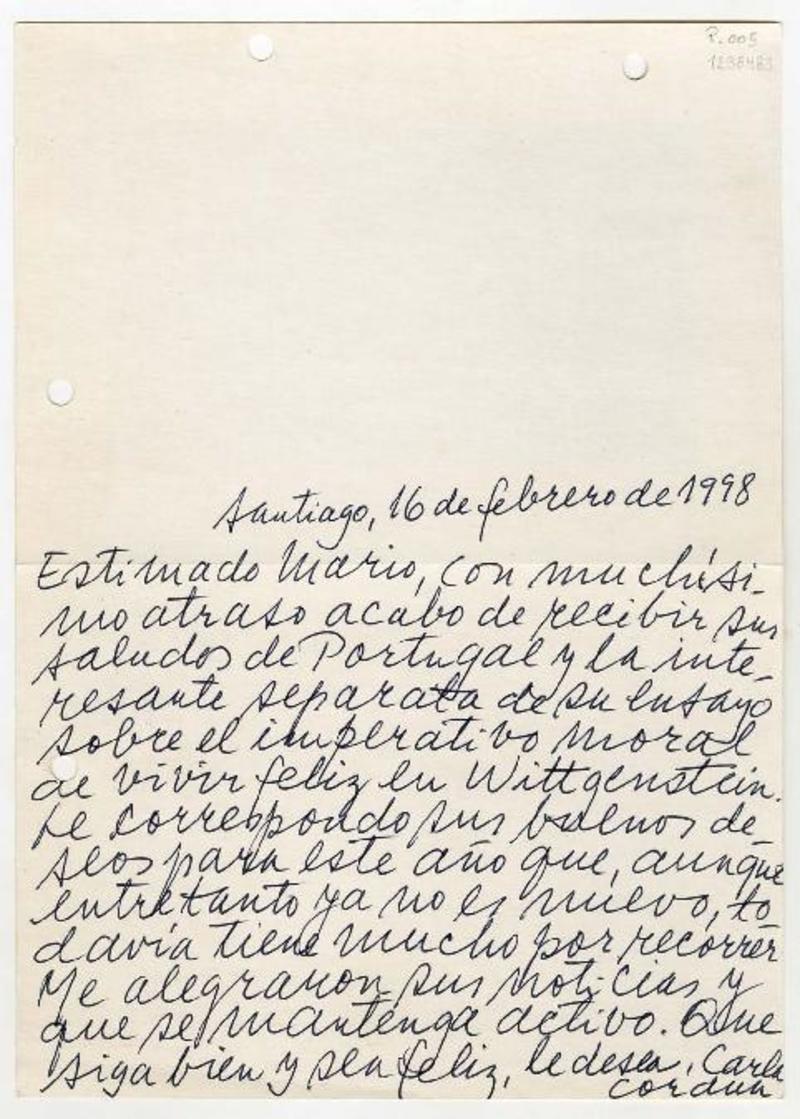 P.005
1238483
Santiago, 16 de febrero de 1998
Estimado Mario, con muchísi-
mo atraso acabo de recibir sus
saludos de Portugal y la inte-
resante separata de su ensayo
sobre el imperativo moral
de vivir feliz en Wittgenstein.
Le correspondo sus buenos de-
seos para este año que, aunque
entretanto ya no es nuevo, to
davía tiene mucho por recorrer
Me alegraron sus noticias y
que se mantenga activo. Que
siga bien y sea feliz, le desea, Carla
Cordua